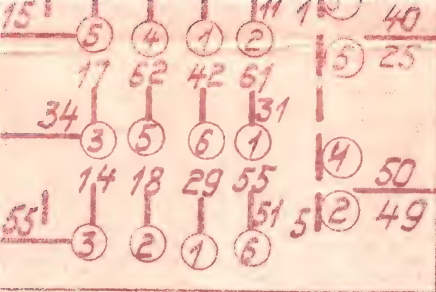 15 11 1 40
5 4 1 2 5 25
17 52 42 61
34 31
3 5 6 1 4
14 18 29 55 50
55 51 5 2 49
3 2 1 6